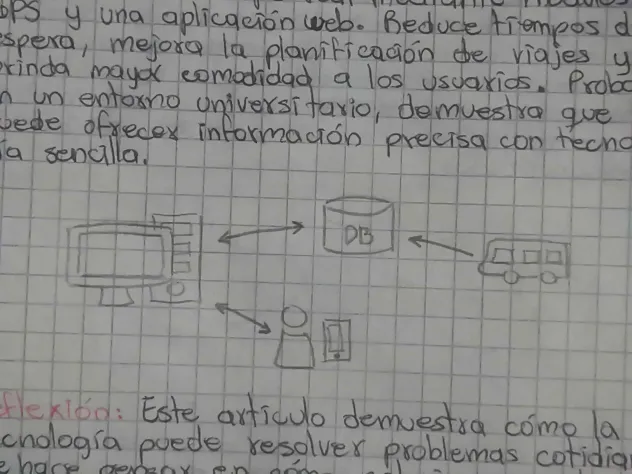 GPS y una aplicación web. Reduce tiempos d
espera, mejora la planificación de viajes y
rinda mayor comodidad a los usuarios. Proba
n un entorno universitario, demuestra que
uede ofrecer información precisa con tecno
ía sencilla.
DB
flexión: Este artículo demuestra cómo la
cnología puede resolver problemas cotidia